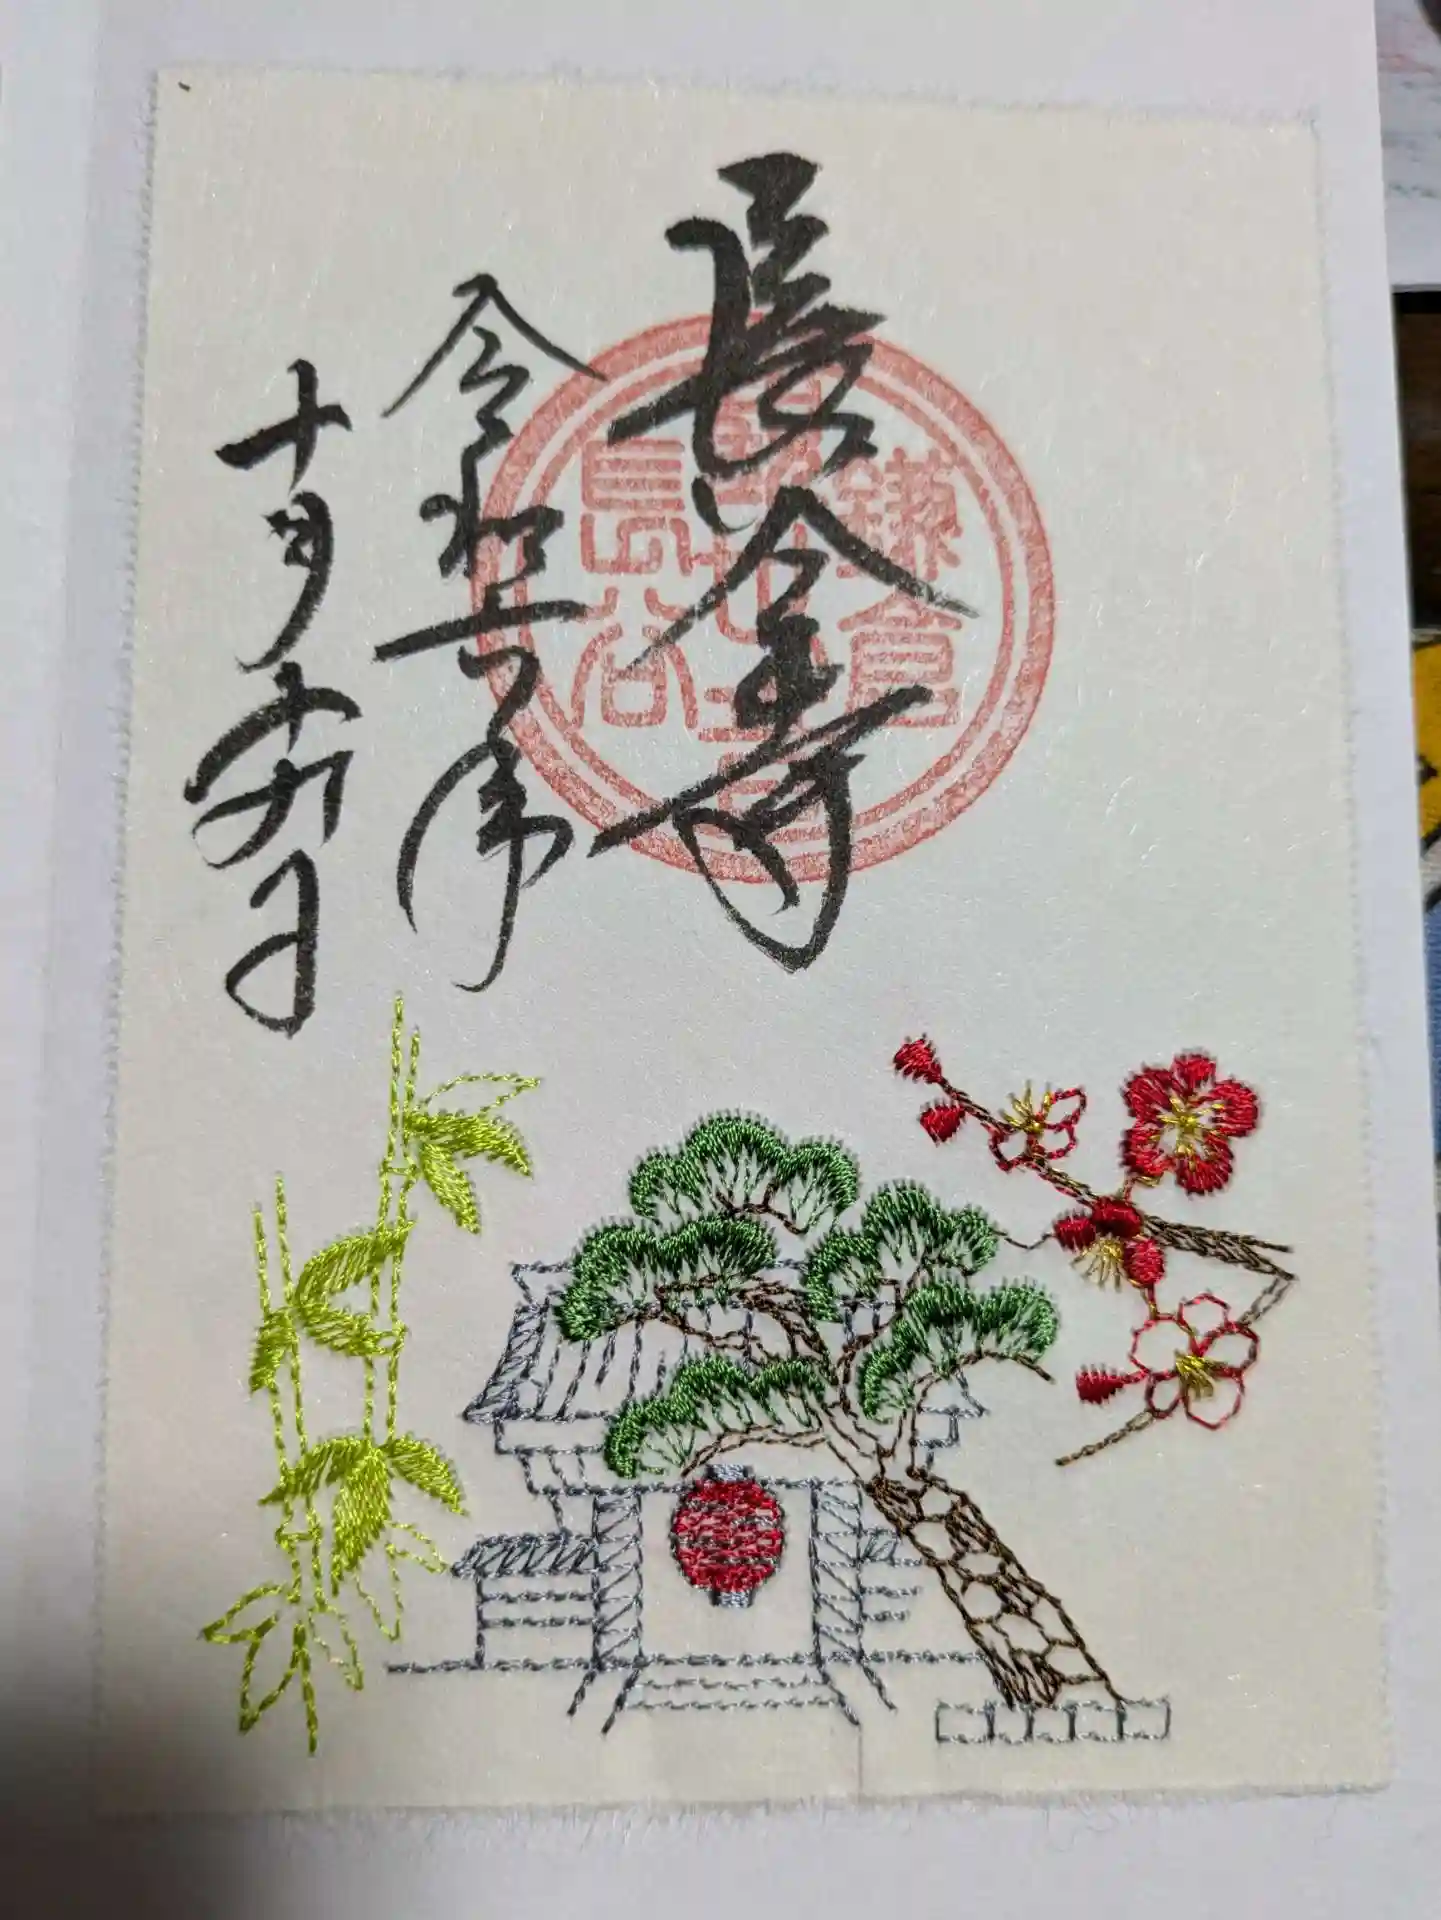 長谷寺
令和六年
十月十九日
鎌倉
長谷